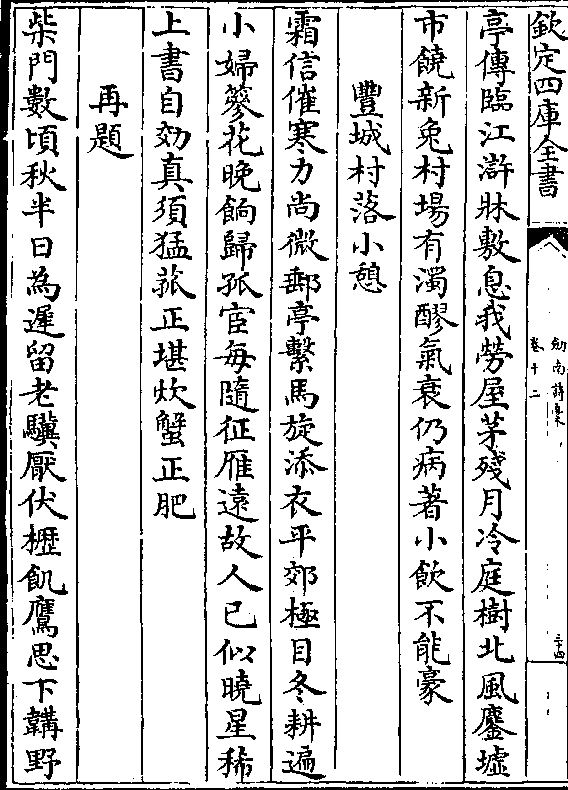 欽定四庫全書
劍南詩稾
卷十二
三十四
亭傳臨江滸牀敷息我勞屋茅殘月冷庭樹北風鏖墟
市饒新兔村場有濁醪氣衰仍病著小飲不能豪
豐城村落小憩
霜信催寒力尚微郵亭繫馬旋添衣平郊極目冬耕遍
小婦簪花晚餉歸孤宦每隨征雁遠故人已似曉星稀
上書自効真須猛菰正堪炊蟹正肥
再題
柴門數頃秋半日為遲留老驥厭伏櫪飢鷹思下韝野